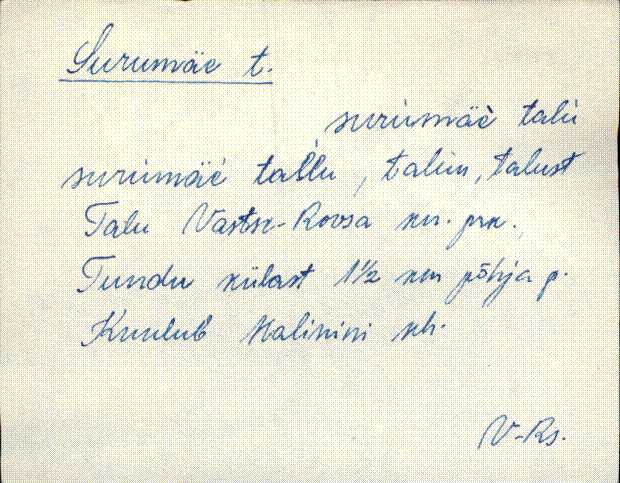 Surumäe t.
surùmäè talu
surùmäè tal̀lu, talun, talust
Talu Vastse-Roosa kn. prk.
Tundu külast 1½ km põhja p.
Kuulub Kalinini kh.
V-Rs.